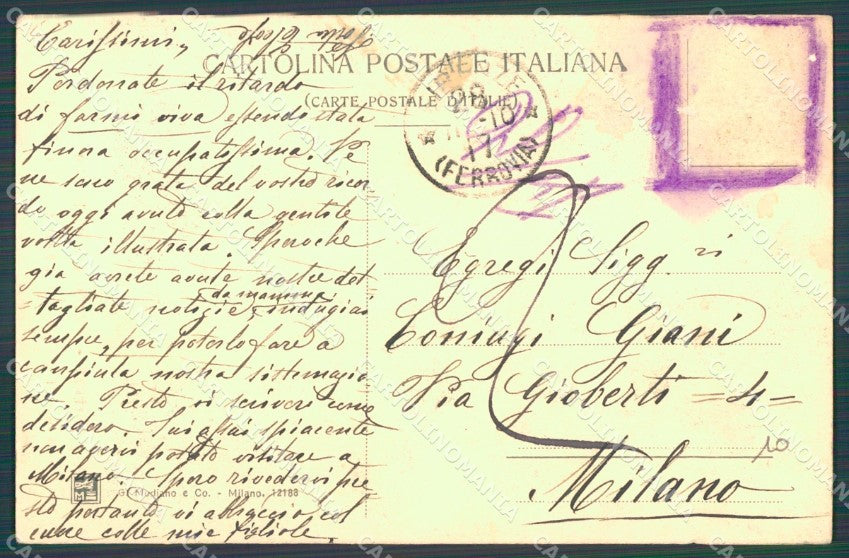 Carissimi,
CARTOLINA POSTALE ITALIANA
(CARTE POSTALE D'ITALIE)
Perdonate il ritardo
di farmi viva essendo stata
finora occupatissima. Ve
ne sono grata del vostro ricor
do oggi avuto colla gentile
vostra illustrata. Speroche
già avrete avute nostre det
tagliate notizie da mamma indugiai
sempre, per poterlo fare a
compiuta nostra sistemazio
ne. Presto vi scriverò come
desidero. Fui assai spiacente
non avervi potuto visitare a
Milano. Spero rivedervi pre
sto pertanto vi abbraccio col
cuore colle mie figliole.
98
-10
17
(FERROVIA)
Egregi Sigg.ri
Coniugi Giani
Via Gioberti =4=
Milano
10
G. Modiano e Co. - Milano. 12188
CARTOLINOMANIA